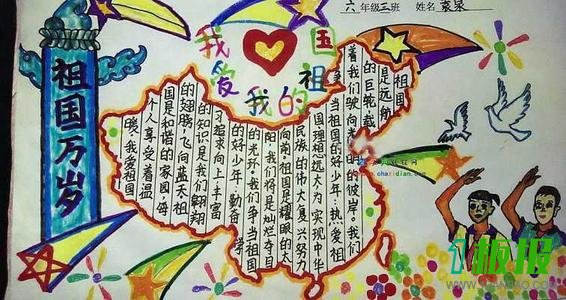 六年级三班 姓名 袁泉
我爱我的祖国
祖国万岁
祖国
是远航
的巨轮载
着我们驶向光明的彼岸。我们
争当祖国的好少年,热爱祖
国理想远大为实现中华
民族的伟大复兴努力
向前。祖国是耀眼的太
阳,我们将是灿烂夺目
的光环。我们争当祖国
的好少年,勤奋学
习追求向上丰富
的知识是我们翱翔
的翅膀,飞向蓝天祖
国是和谐的家园,每
个人享受着温
暖,我爱祖国
chazidian.com
板报